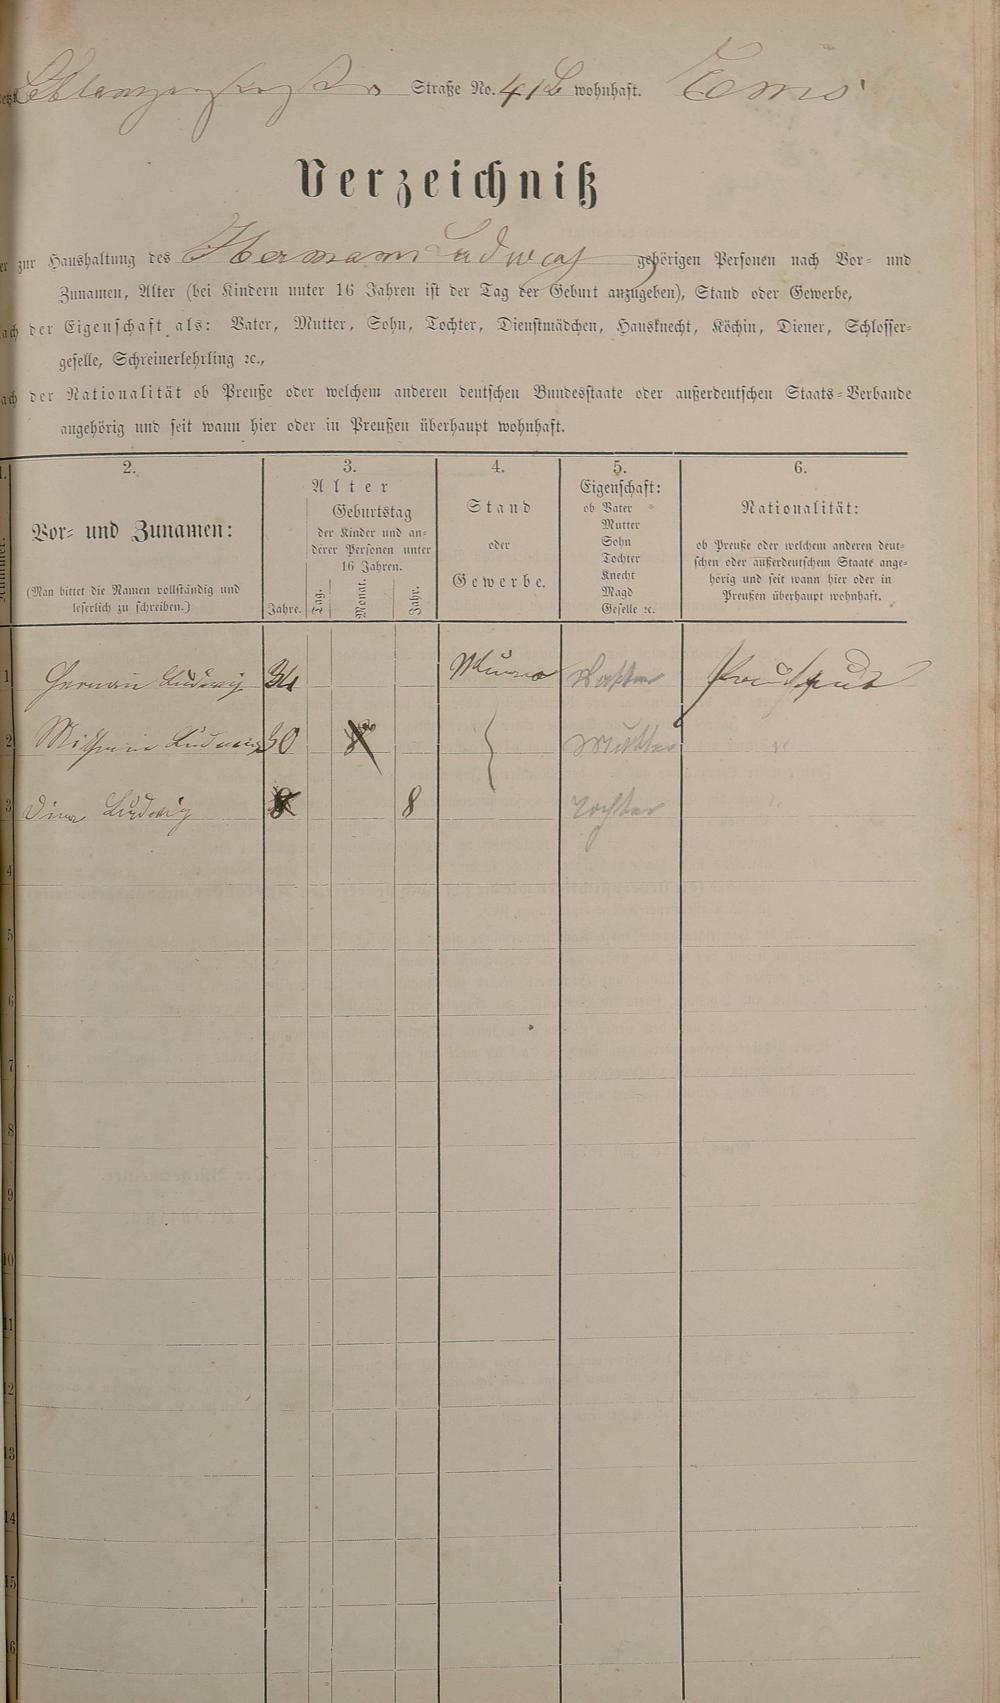 Straße No. 41b wohnhaft. Ems
Verzeichniß
zur Haushaltung des Hermann Ludwig gehörigen Personen nach Vor- und
Zunamen, Alter (bei Kindern unter 16 Jahren ist der Tag der Geburt anzugeben), Stand oder Gewerbe,
nach der Eigenschaft als: Vater, Mutter, Sohn, Tochter, Dienstmädchen, Hausknecht, Köchin, Diener, Schlosser-
geselle, Schreinerlehrling ꝛc.,
nach der Nationalität ob Preuße oder welchem anderen deutschen Bundesstaate oder außerdeutschen Staats-Verbande
angehörig und seit wann hier oder in Preußen überhaupt wohnhaft.
1. 2. 3. 4. 5. 6.
Nummer.
Vor- und Zunamen:
(Man bittet die Namen vollständig und
leserlich zu schreiben.)
Alter
Jahre.
Geburtstag
der Kinder und an-
derer Personen unter
16 Jahren.
Tag. Monat. Jahr.
Stand
oder
Gewerbe.
Eigenschaft:
ob Vater
Mutter
Sohn
Tochter
Knecht
Magd
Geselle ꝛc.
Nationalität:
ob Preuße oder welchem anderen deut-
schen oder außerdeutschem Staate ange-
hörig und seit wann hier oder in
Preußen überhaupt wohnhaft.
1 Herman Ludwig 34
2 Ludwig 30 Mutter "
3 Dina Ludwig 8 Tochter "
4
5
6
7
8
9
10
11
12
13
14
15
16